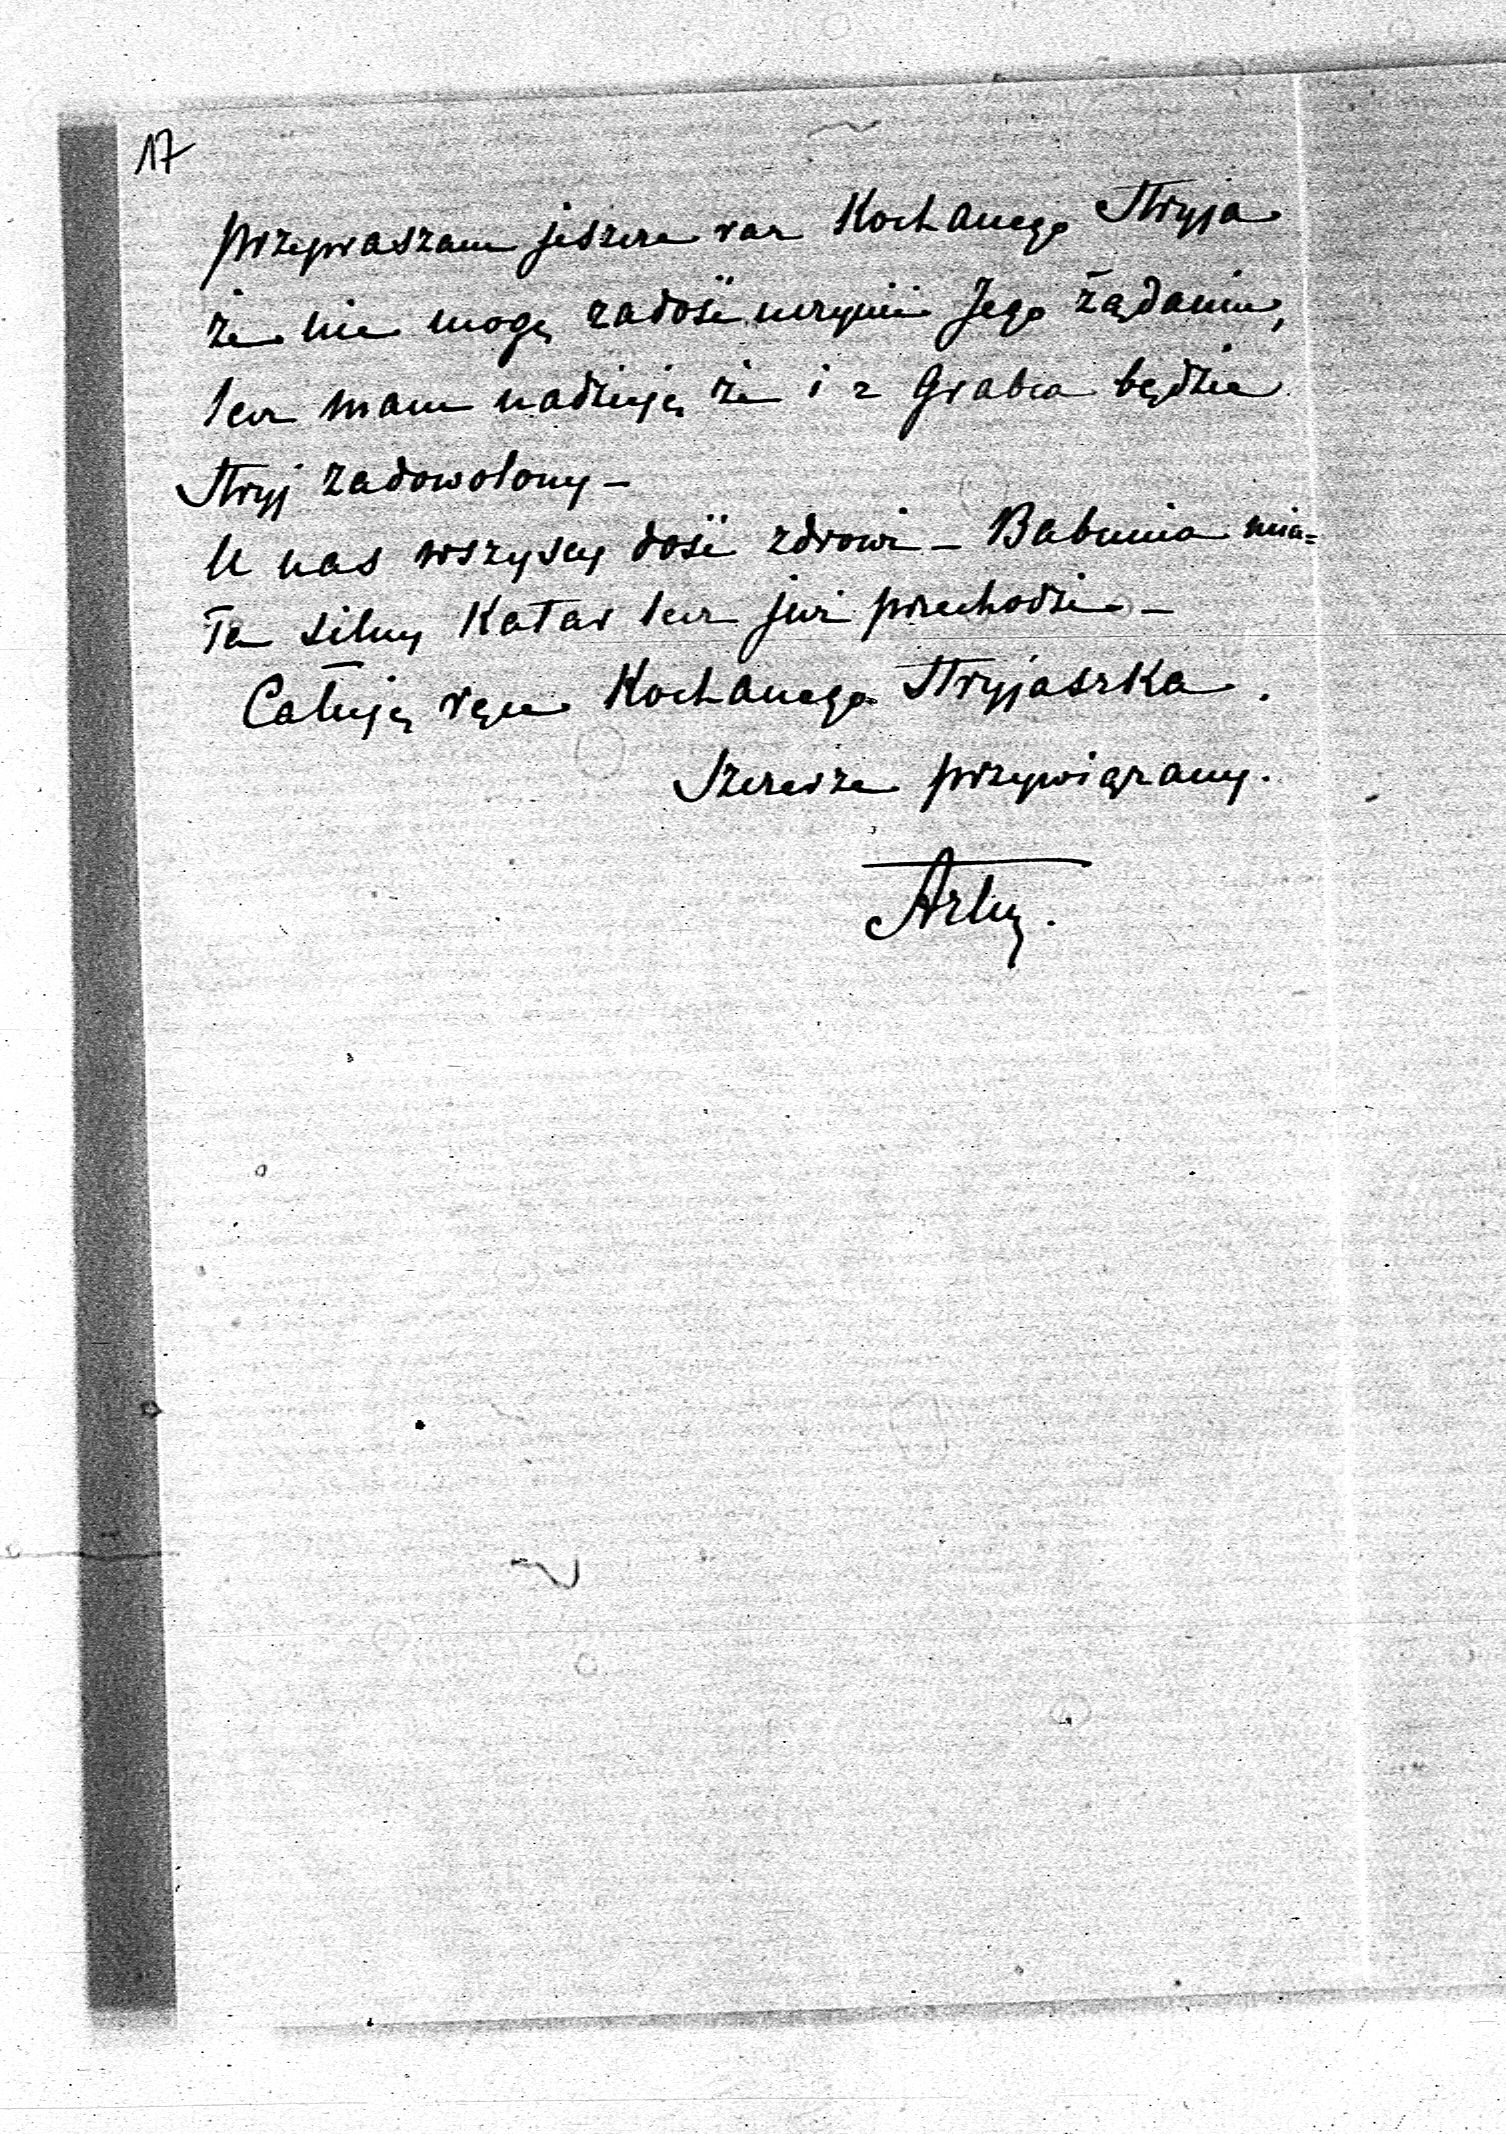 17
przepraszam jeszcze raz Kochanego Stryja
że nie mogę zadość uczynić Jego żądaniu,
lecz mam nadzieję że i z Grabca będzie
Stryj zadowolony –
U nas wszyscy dość zdrowi – Babunia mia=
ła silny Katar lecz już przechodzi –
Całuję ręce Kochanego Stryjaszka .
Szczerze przywiązany.